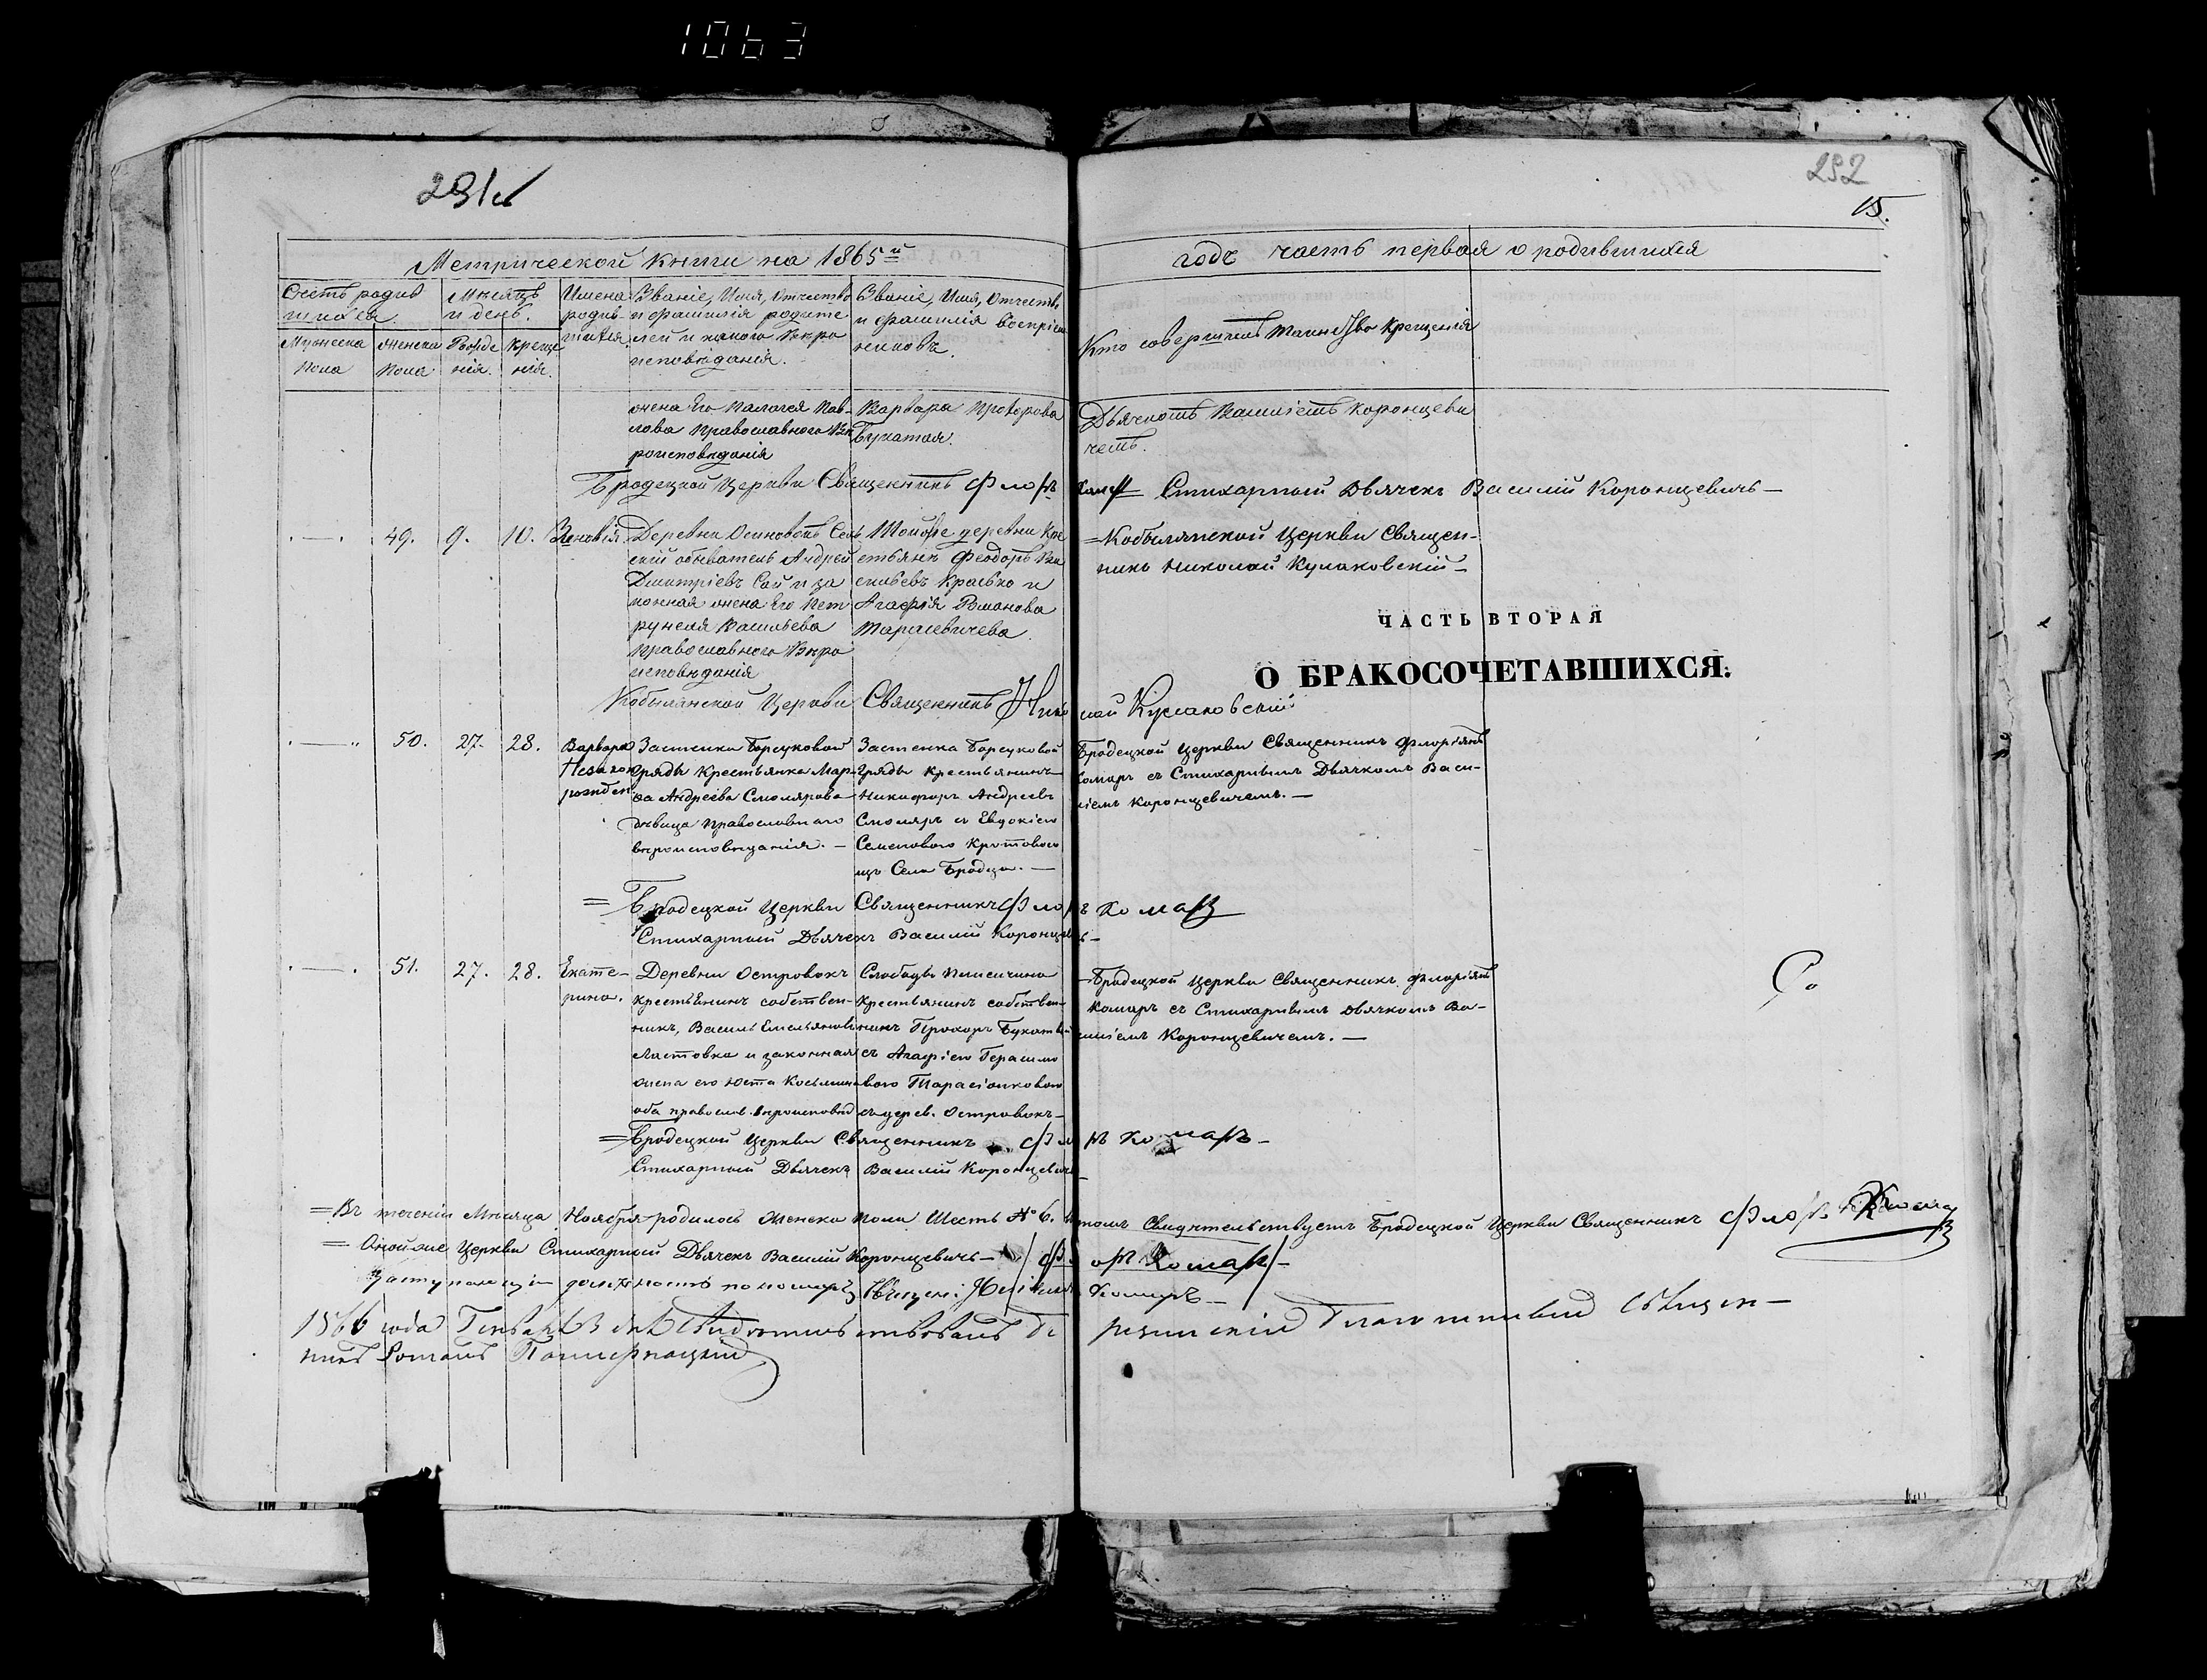 1063
291
292
15.
Метрической книги на 1865й
годъ часть первая о родившихся
Счетъ родив
шихся.
Мужеска
пола
женска
пола
Мѣсяцъ
и день.
Рожде
нія.
Креще
нія.
Имена
родив-
шихся.
Званіе, Имя, Отчество
и фамилія родите-
лей и какого Вѣро
исповѣданія.
Званіе, Имя, Отчество
и фамилія воспріем
никовъ.
Кто совершилъ таинство крещенія
жена Его Палагея Пав-
лова православнаго Вѣ
роисповѣданія
Варвара Прохорова
Букатая.
Дьячкомъ Василіемъ Коронцеви
чемъ.
Бродецкой Церкви Священникъ Флоръ Комаръ Стихарный Дьячекъ Василій Коронцевичъ—
49. 9. 10. Зеновія
Деревни Осиновокъ Сель
скій обыватель Андрей
Дмитріевъ Сай и за
конная жена Его Пет
рунеля Васильева
православнаго Вѣро
исповѣданія
Тойже деревни Кре
стьянъ Феодоръ
Краевко и
Агафія Романова
Тарасевичева
=Кобылянской Церкви Священ-
никъ Николай Кулаковскій—
ЧАСТЬ ВТОРАЯ
О БРАКОСОЧЕТАВШИХСЯ.
Кобылянской Церкви Священникъ Николай Кулаковскій
50. 27. 28. Варвара
Незакон
рожден
Застенка Борсуковой
Гряды Крестьянка Мар-
ѳа Андреева Смолярова
дѣвица православнаго
вѣроисповѣданія.—
Застенка Борсуковой
Гряды Крестьянинъ
Никифоръ Андреевъ
Смоляръ съ Евдокіею
Семеновою Кротовою
изъ Села Бродца.—
Бродецкой Церкви Священникъ Флоріянъ
Комаръ съ Стихарнымъ Дьячкомъ Васи-
ліемъ Коронцевичемъ.—
=Бродецкой Церкви Священникъ Флоръ Комаръ
Стихарный Дьячекъ Василій Коронцевичъ—
51. 27. 28. Екате-
рина.
Деревни Островокъ
крестьянинъ собствен-
никъ, Василь Емельяновъ
Ластовка и законная
жена его Юста Косьмина
оба правосл. вѣроисповѣд
Слободы
Крестьянинъ собствен-
никъ Прохоръ Букатый
съ Агафіею Герасимо
вою Тарасіонковою
съ дерев. Островокъ—
—Бродецкой Церкви Священникъ Флоріянъ
Комаръ съ Стихарнымъ Дьячкомъ Ва-
силіемъ Коронцевичемъ.—
=Бродецкой Церкви Священникъ Флоръ Комаръ—
Стихарный Дьячекъ Василій Коронцевичъ—
=Въ теченіи Мѣсяца Ноября родилось Женска пола Шесть №6. въ томъ Свидѣтельствуетъ Бродецкой Церкви Священникъ Флоръ Комаръ
=Онойже Церкви Стихарный Дьячекъ Василій Коронцевичъ— /Флоръ Комаръ/—
должность пономаря Комаръ—
1866 года Генваря 3 дня Свидѣтельствовалъ Березинскій Благочинный Священ—
никъ Романъ